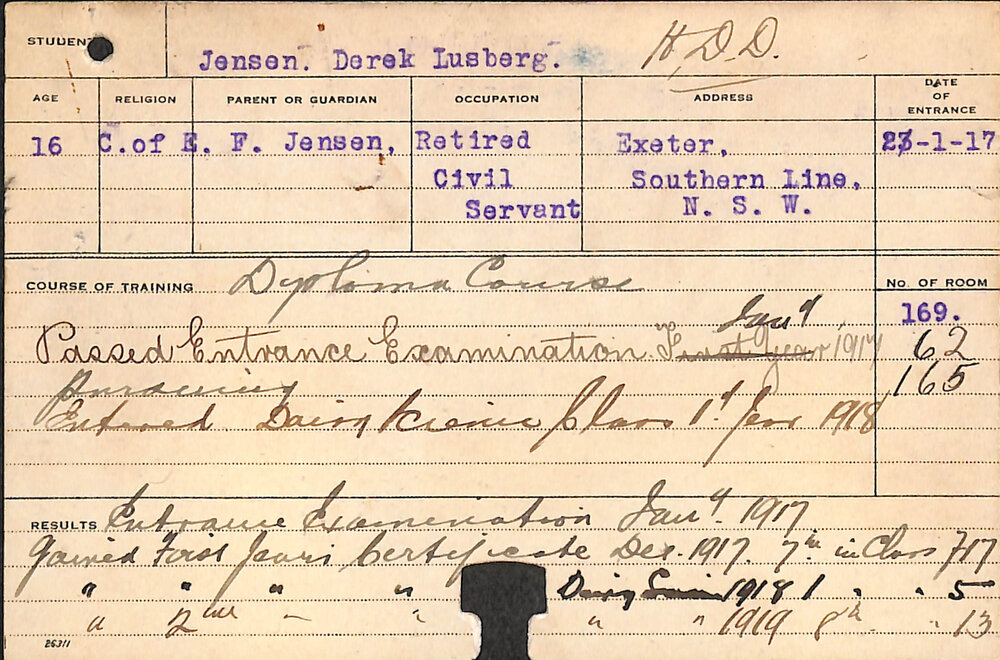 STUDENT Jensen. Derek Lusberg. H.D.D.
AGE RELIGION PARENT OR GUARDIAN OCCUPATION ADDRESS DATE OF ENTRANCE
16 C.of E. F. Jensen, Retired Exeter, 23-1-17
Civil Southern Line,
Servant N. S. W.
COURSE OF TRAINING Diploma Course No. OF ROOM
169.
Passed Entrance Examination First Year Jany 1917 62
pursuing 165
Entered Dairy Science Class 1st Year 1918
RESULTS Entrance Examination Jany. 1917
Gained First Years Certificate Dec. 1917. 7th in Class of 17
" " " " Dairy Science 1918 1 " " 5
" 2nd " " " " 1919 8th " 13
26311